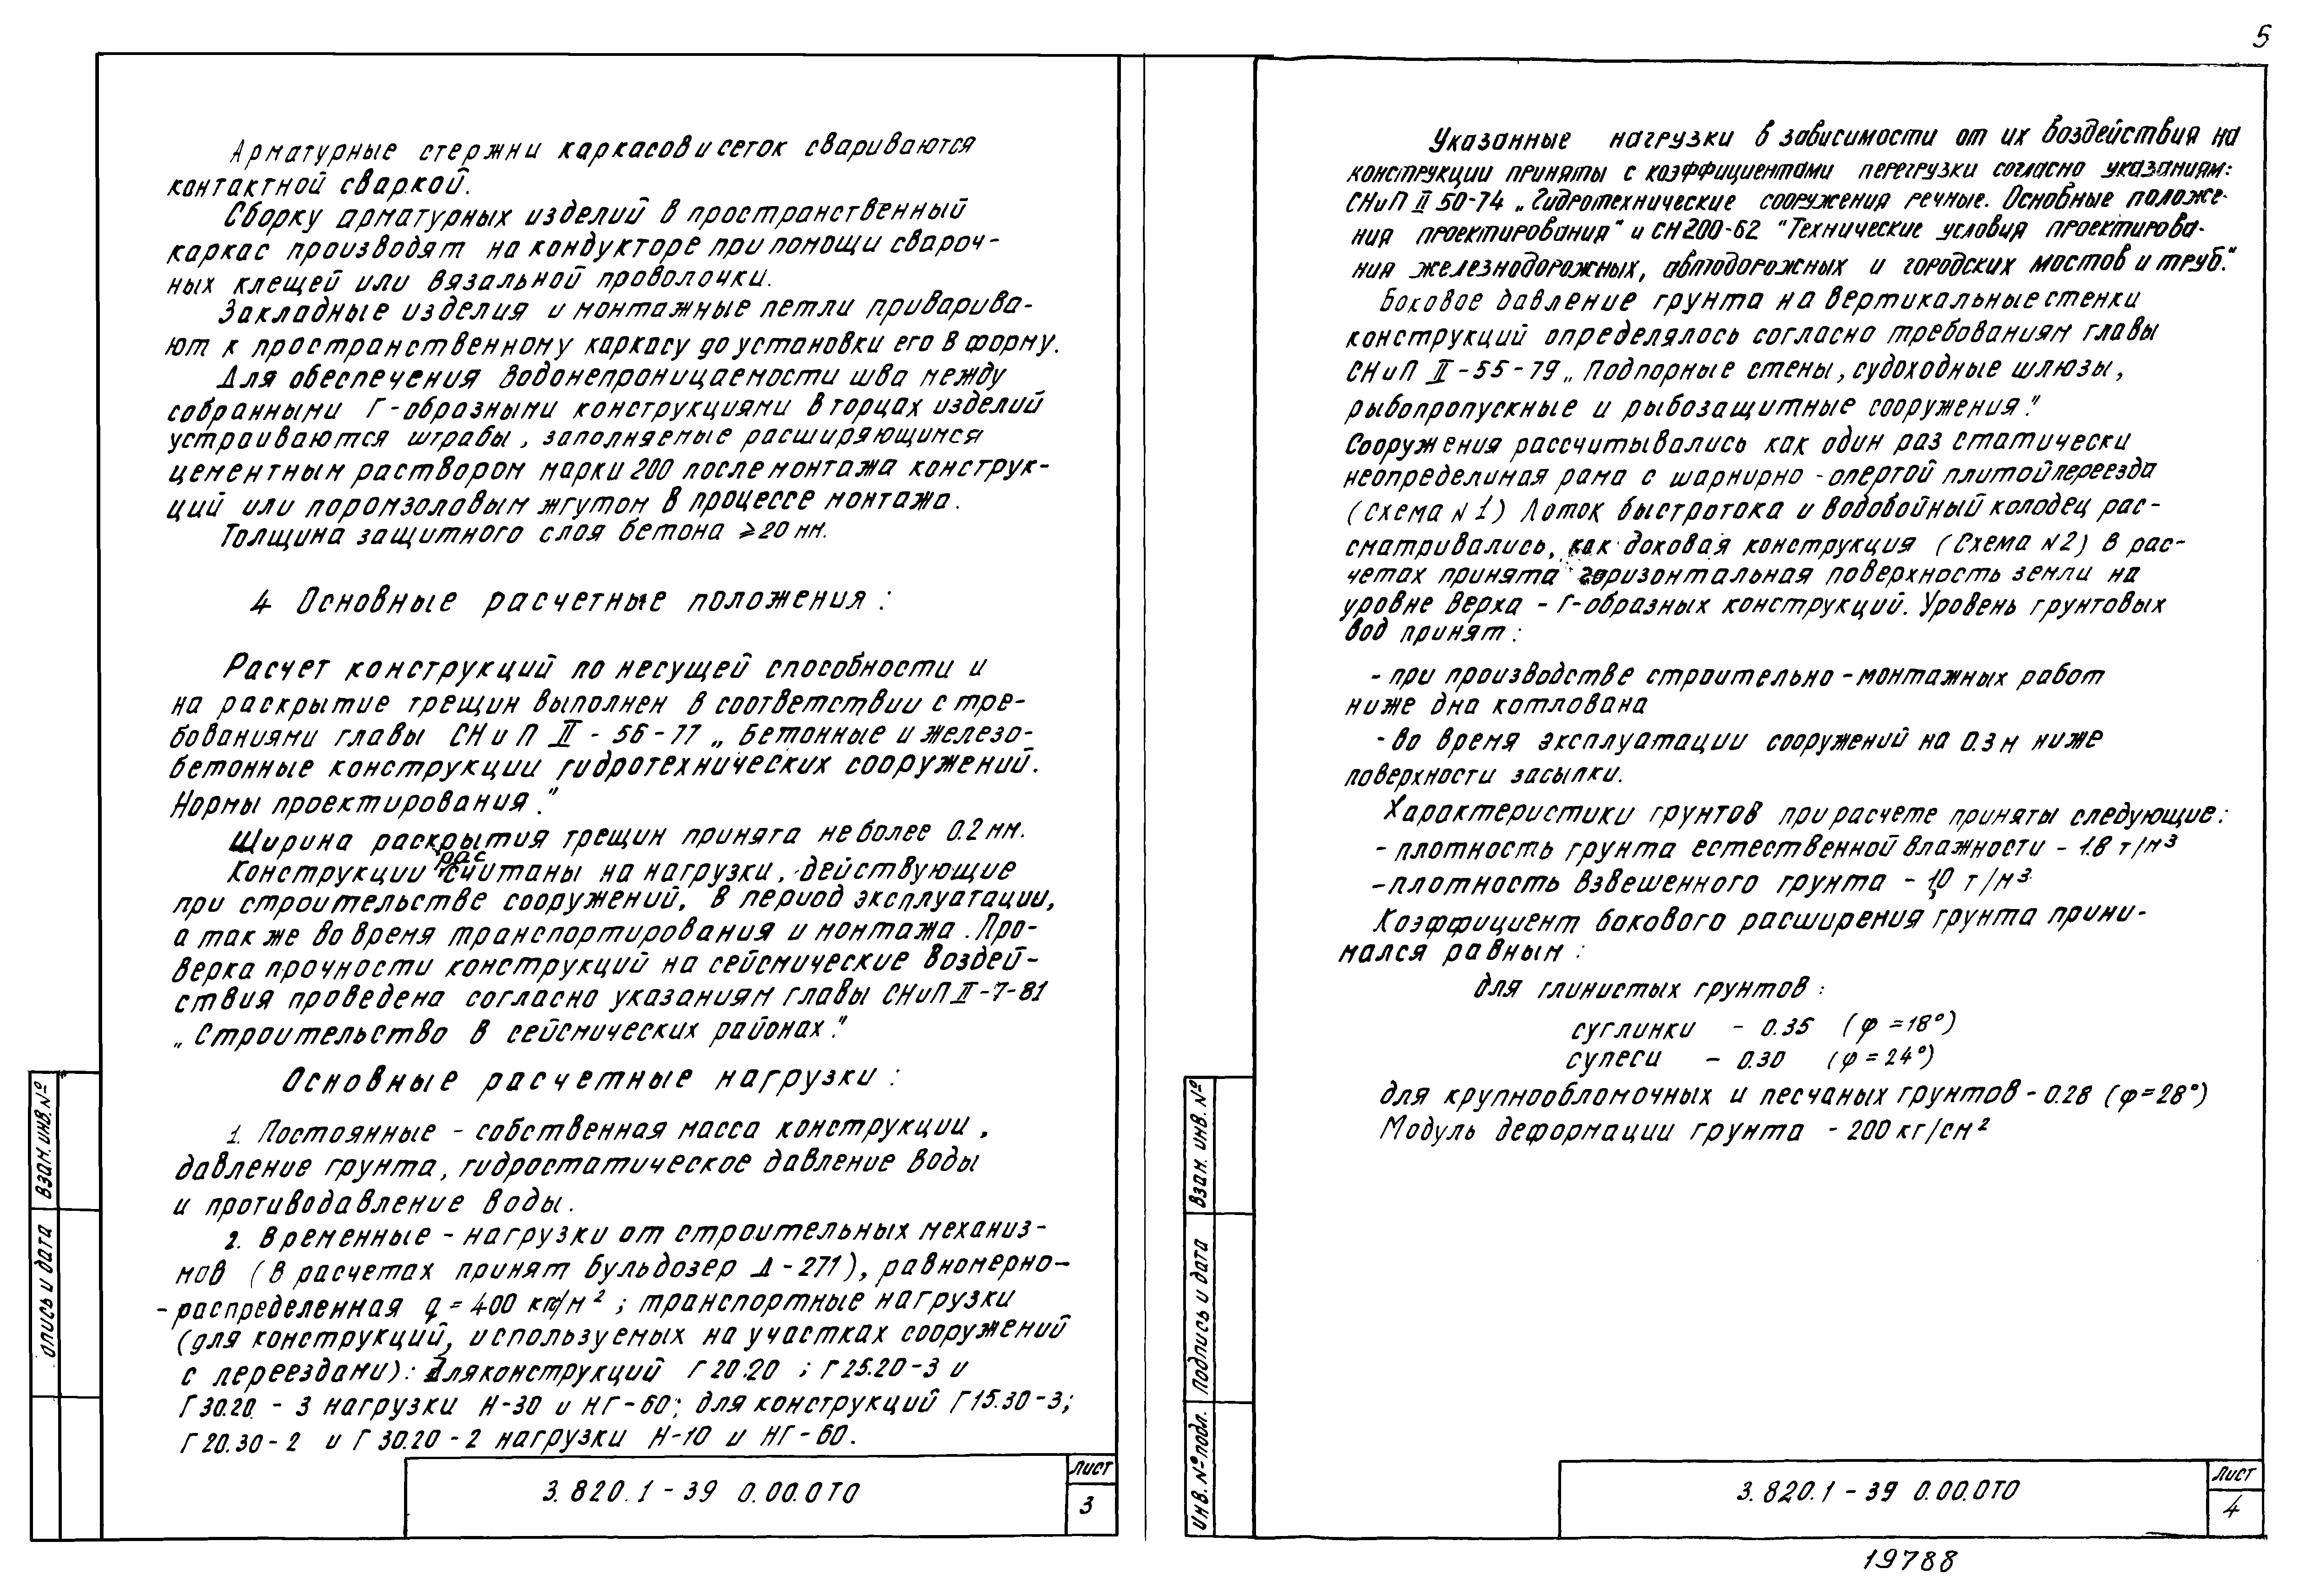 5
Арматурные стержни каркасов и сеток свариваются
контактной сваркой.
Сборку арматурных изделий в пространственный
каркас производят на кондукторе при помощи свароч-
ных клещей или вязальной проволочки.
Закладные изделия и монтажные петли приварива-
ют к пространственному каркасу до установки его в форму.
Для обеспечения водонепроницаемости шва между
собранными Г-образными конструкциями в торцах изделий
устраиваются штрабы, заполняемые расширяющимся
цементным раствором марки 200 после монтажа конструк-
ций или поромзоловым жгутом в процессе монтажа.
Толщина защитного слоя бетона ≥20 мм.
4 Основные расчетные положения:
Расчет конструкций по несущей способности и
на раскрытие трещин выполнен в соответствии с тре-
бованиями главы СНиП II-56-77 „Бетонные и железо-
бетонные конструкции гидротехнических сооружений.
Нормы проектирования."
Ширина раскрытия трещин принята не более 0.2 мм.
Конструкции рассчитаны на нагрузки, действующие
при строительстве сооружений, в период эксплуатации,
а так же во время транспортирования и монтажа. Про-
верка прочности конструкций на сейсмические воздей-
ствия проведена согласно указаниям главы СНиП II-7-81
„Строительство в сейсмических районах."
Основные расчетные нагрузки:
1. Постоянные - собственная масса конструкции,
давление грунта, гидростатическое давление воды
и противодавление воды.
2. Временные - нагрузки от строительных механиз-
мов (в расчетах принят бульдозер Д-271), равномерно-
-распределенная q=400 кг/м²; транспортные нагрузки
(для конструкций, используемых на участках сооружений
с переездами): Для конструкций Г 20.20 ; Г 25.20-3 и
Г 30.20 - 3 нагрузки Н-30 и НГ-60; для конструкций Г15.30-3;
Г 20.30-2 и Г 30.20-2 нагрузки Н-10 и НГ-60.
3.820.1-39 0.00.0ТО
Лист
3
Взам. инв. №
опись и дата
Указанные нагрузки в зависимости от их воздействия на
конструкции приняты с коэффициентами перегрузки согласно указаниям:
СНиП II 50-74 „Гидротехнические сооружения речные. Основные положе-
ния проектирования" и СН 200-62 "Технические условия проектирова-
ния железнодорожных, автодорожных и городских мостов и труб."
Боковое давление грунта на вертикальные стенки
конструкций определялось согласно требованиям главы
СНиП II-55-79 „Подпорные стены, судоходные шлюзы,
рыбопропускные и рыбозащитные сооружения."
Сооружения рассчитывались как один раз статически
неопределимая рама с шарнирно-опертой плитой переезда
(схема N 1) Лоток быстротока и водобойный колодец рас-
сматривались, как доковая конструкция (Схема N2) В рас-
четах принята горизонтальная поверхность земли на
уровне верха - Г-образных конструкций. Уровень грунтовых
вод принят:
- при производстве строительно-монтажных работ
ниже дна котлована
- во время эксплуатации сооружений на 0.3 м ниже
поверхности засыпки.
Характеристики грунтов при расчете приняты следующие:
- плотность грунта естественной влажности - 1.8 т/м³
- плотность взвешенного грунта - 1,0 т/м³
Коэффициент бокового расширения грунта прини-
мался равным:
для глинистых грунтов:
суглинки - 0.35 (φ=18°)
супеси - 0.30 (φ=24°)
для крупнообломочных и песчаных грунтов - 0.28 (φ=28°)
Модуль деформации грунта - 200 кг/см²
3.820.1-39 0.00.0ТО
Лист
4
Взам. инв. №
Подпись и дата
Инв. № подл.
19788